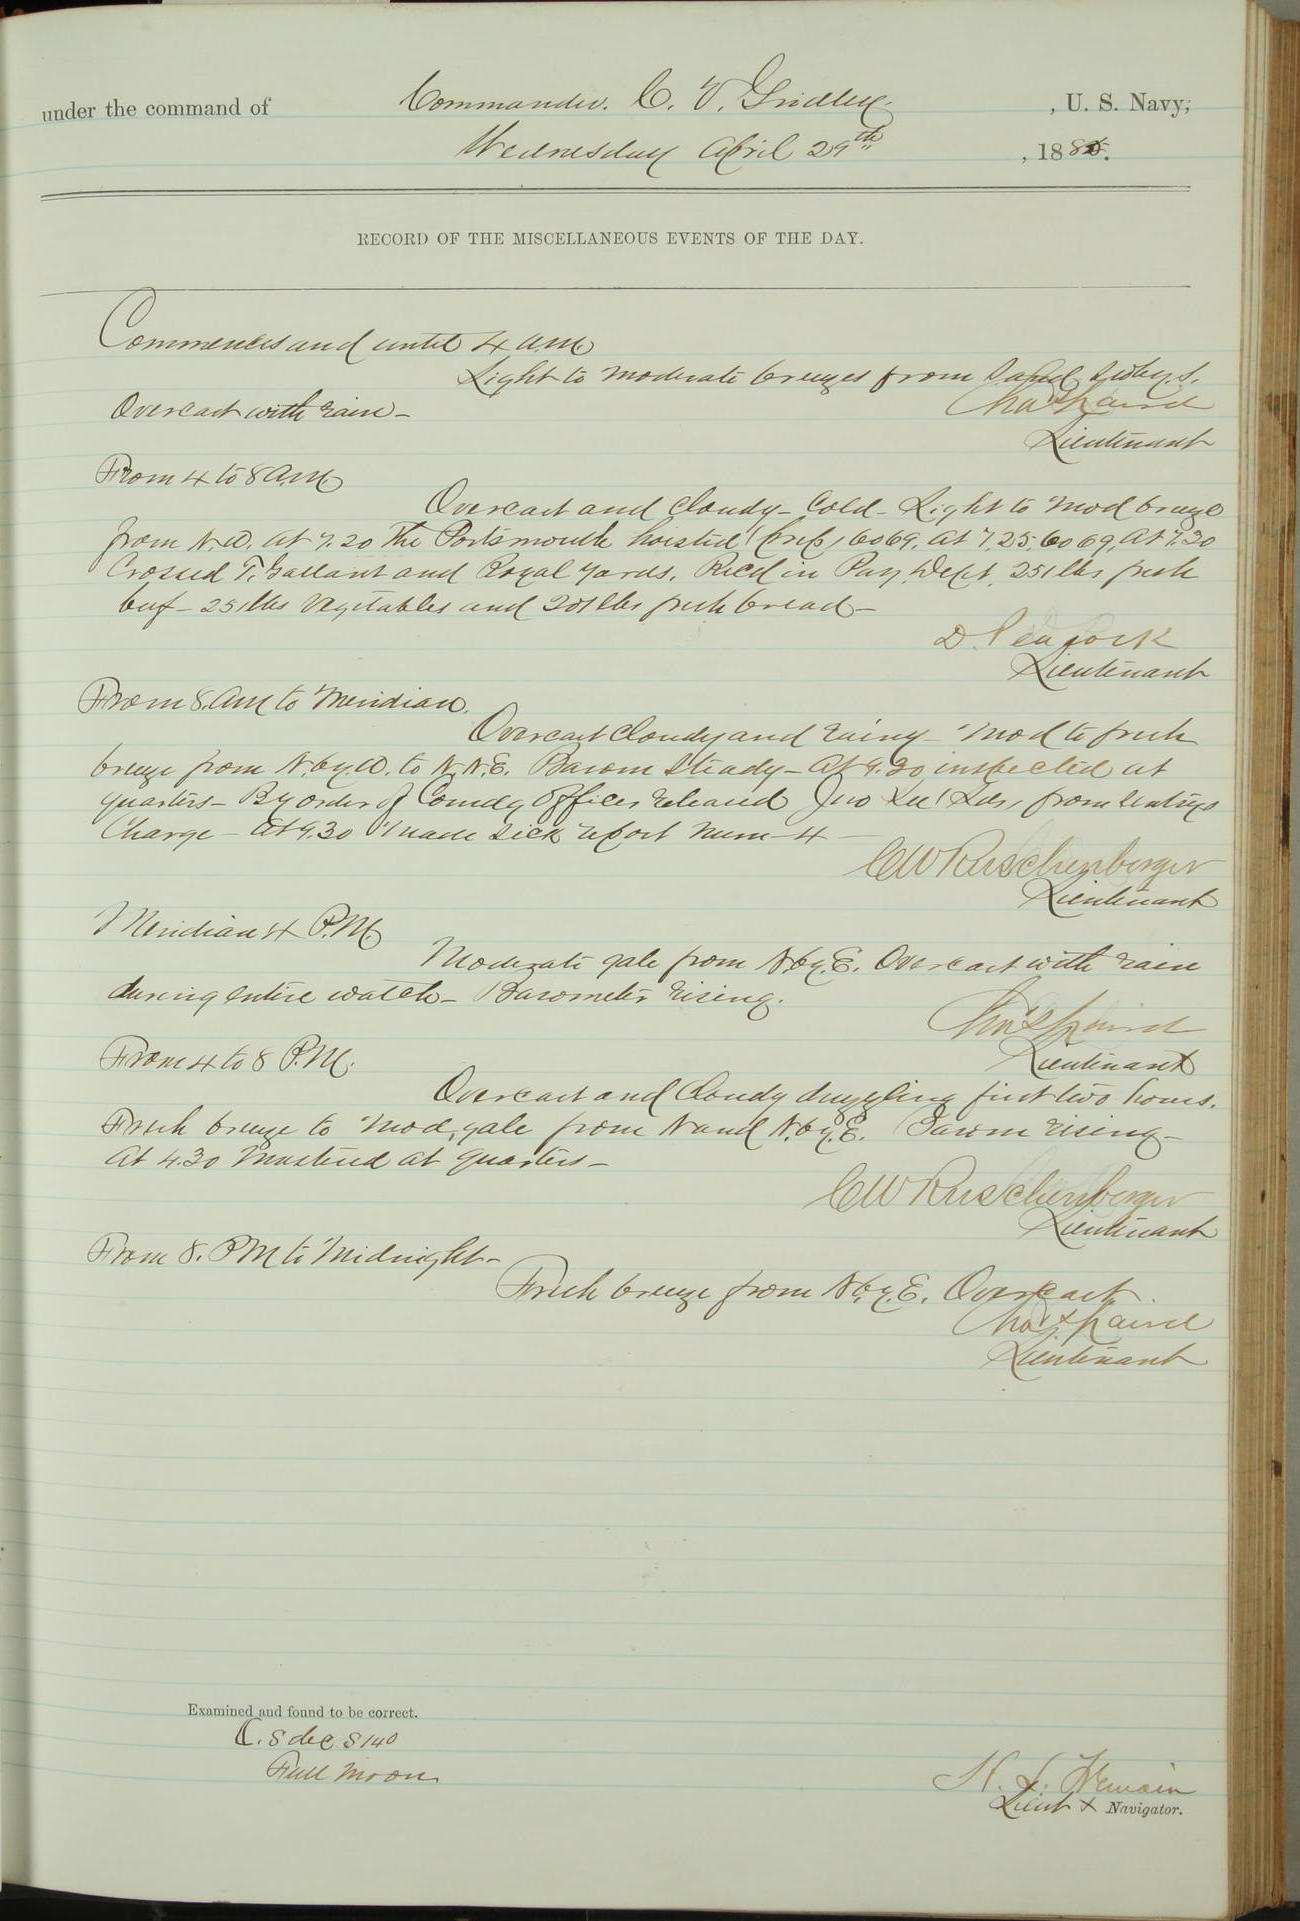 under the command of Commander. C. V. Gridley. , U. S. Navy,
Wednesday April 29th , 1885.
RECORD OF THE MISCELLANEOUS EVENTS OF THE DAY.
Commences and until 4 A.M.
Light to moderate breezes from S. and S.W. by S.
Overcast with rain—
Chas Laird
Lieutenant
From 4 to 8 A.M.
Overcast and Cloudy— Cold— Light to Mod breeze
from N.W. at 7.20 The Portsmouth hoisted (Prep) 6069. At 7.25. 6069, At 7.30
Crossed T. Gallant and Royal Yards. Recd in Pay Dept. 251 lbs fresh
beef— 251 lbs Vegetables and 201 lbs fresh bread—
D. Peacock
Lieutenant
From 8. AM to Meridian.
Overcast Cloudy and rainy— Mod to fresh
breeze from N. by W. to N.N.E. Barom Steady— At 9.30 inspected at
quarters— By order of Comdg Officer released Jno Lee from Sentry's
Charge— At 9.30 Made Sick report Num— 4—
C W Ruschenberger
Lieutenant
Meridian 4 P.M.
Moderate gale from N. by E. Overcast with rain
during entire watch— Barometer rising.
Chas Laird
Lieutenant
From 4 to 8 P.M.
Overcast and Cloudy drizzling first two hours.
Fresh breeze to Mod, gale from N and N. by E. Barom rising—
At 4.30 Mustered at quarters—
C W Ruschenberger
Lieutenant
From 8. P.M to Midnight—
Fresh breeze from N by. E. Overcast.
Chas Laird
Lieutenant
Examined and found to be correct.
C. 8 dec S 140
Full Moon
Lieut & Navigator.